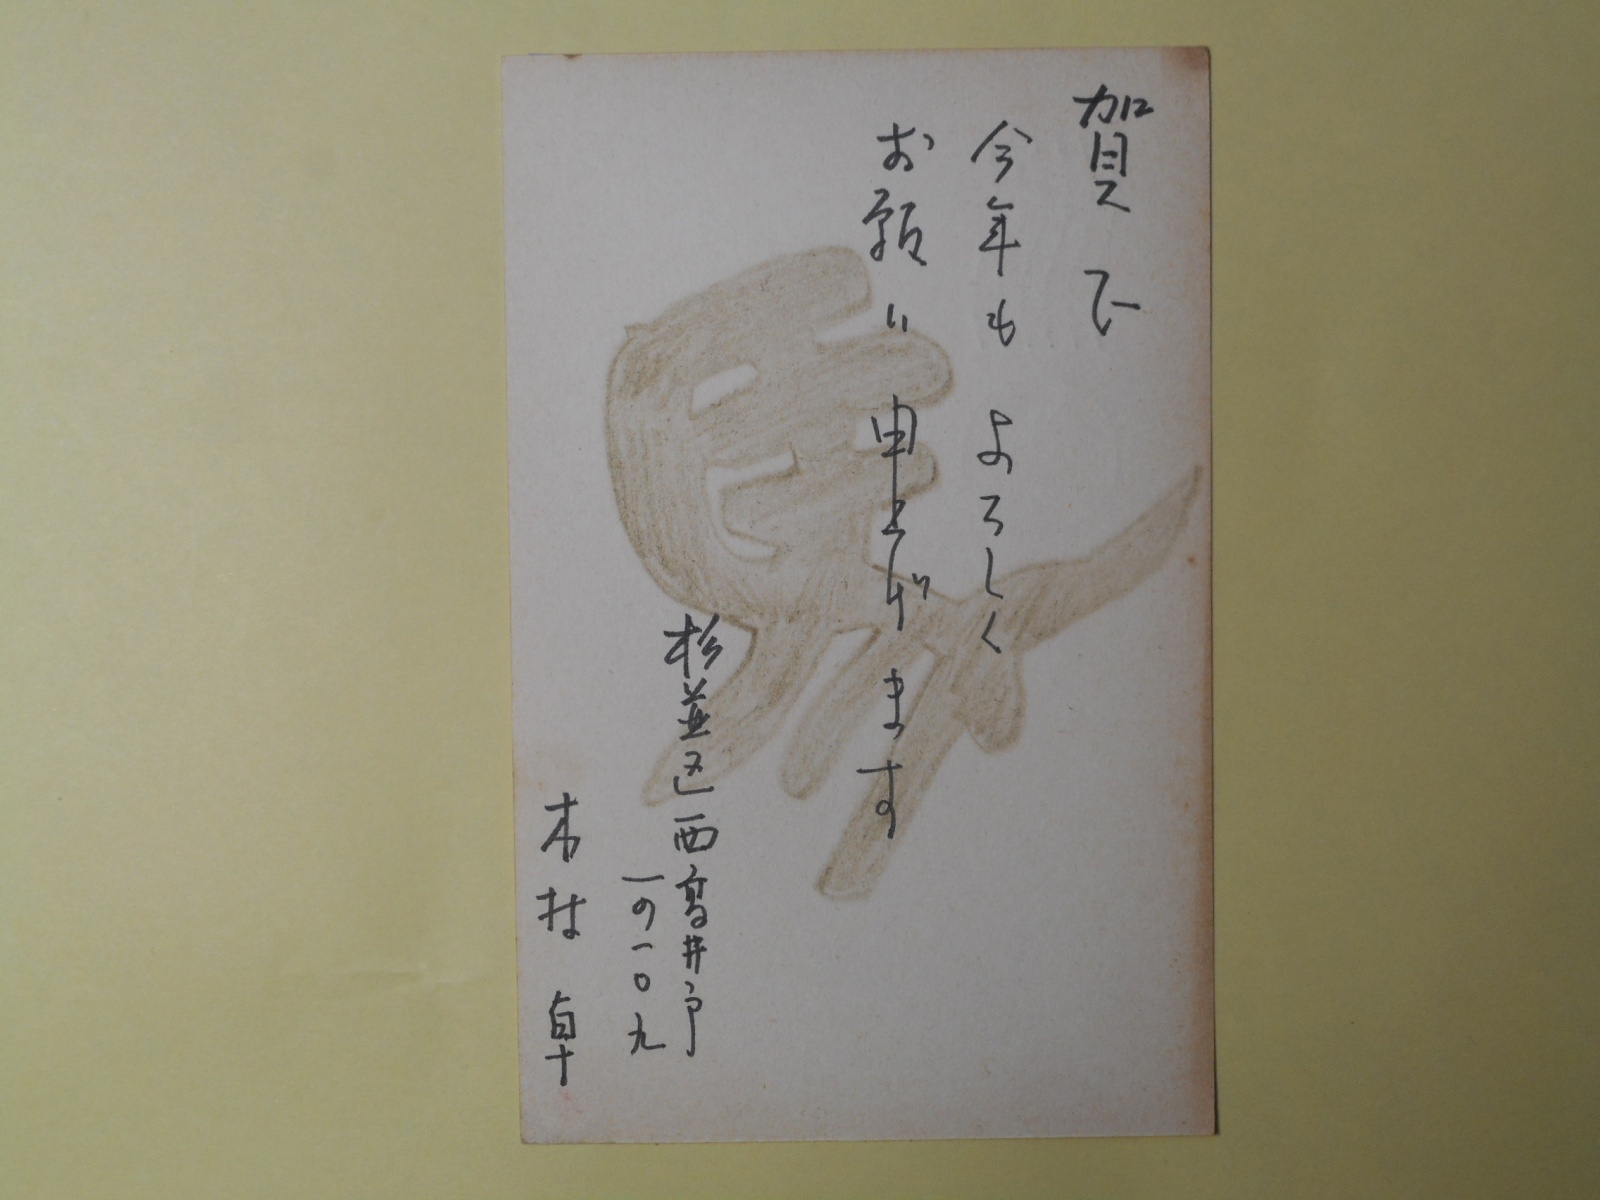 賀正
今年も よろしく
お願い 申上げます
杉並区西高井戸
一の一〇九
木村 卓